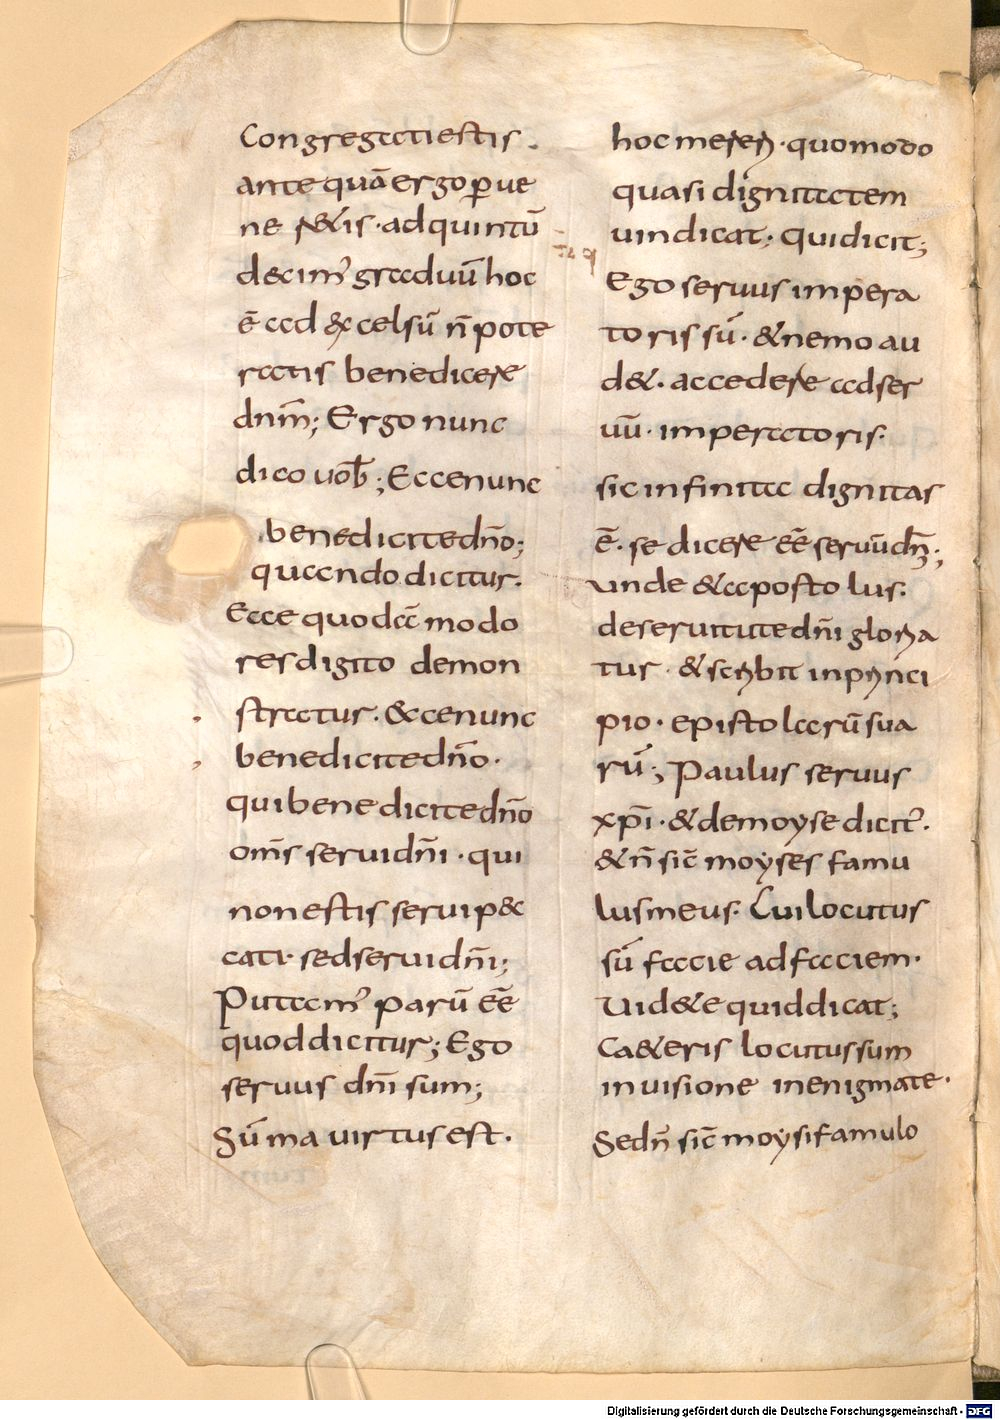 Congregati estis.
ante quā ergo ꝑue
ne retis · ad quintū
decim' graduū hoc
ē ad excelsū n̄ pote
ratis benedicere
dnm̄; Ergo nunc
dico uob̄; Ecce nunc
benedicite dn̄o;
quando dicitur.
Ecce quod āc modo
res digito demon
stratur. & ce nunc
benedicite dn̄o·
qui benedicite dn̄o
om̄s serui dn̄i · qui
non estis serui pec
cati· sed serui dn̄i;
Putam' parū eē
quod dicitur; Ego
seruus dn̄i sum;
Sūma uirtus est.
hoc mereri · quomodo
quasi dignitatem
uindicat; Qui dicit;
Ego seruus impera
toris sū· & nemo au
d&· accedere ad ser
uū· imperatoris·
sic infinita dignitas
ē· se dicere eē seruū dn̄i;
unde & apostolus.
de seruitute dn̄i gloria
tur · & scribit in princi
pio· epistolarū sua
rū; Paulus seruus
xp̄i · & de moyse dicit'.
& n̄ sic̄ moyses famu
lus meus. Cui locutus
sū facie ad faciem·
Uidete quid dicat;
Ca&eris locutus sum
in uisione in enigmate·
Sed n̄ sic̄ moysi famulo
Digitalisierung gefördert durch die Deutsche Forschungsgemeinschaft - DFG